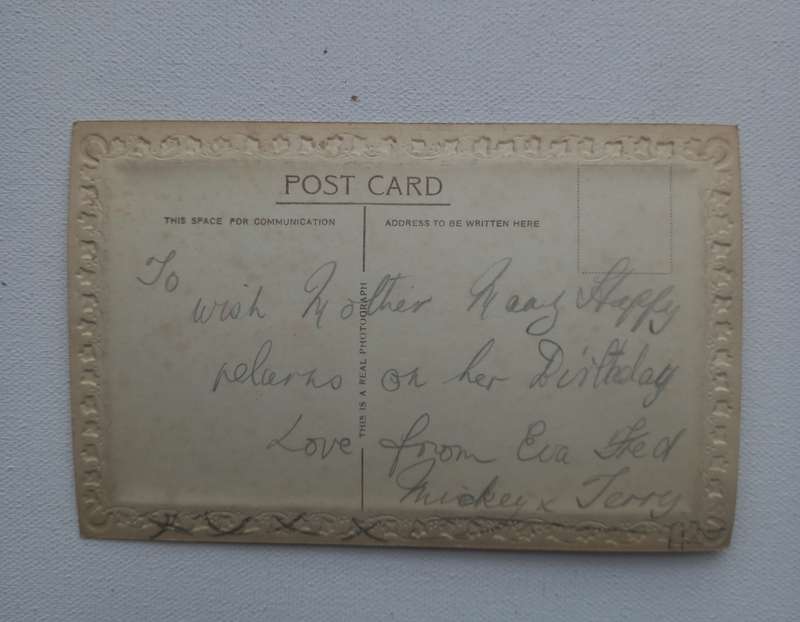 POST CARD
THIS SPACE FOR COMMUNICATION
ADDRESS TO BE WRITTEN HERE
THIS IS A REAL PHOTOGRAPH
To
wish Mother Many Happy
returns on her Birthday
Love from Eva
Mickey x Terry
X X X X